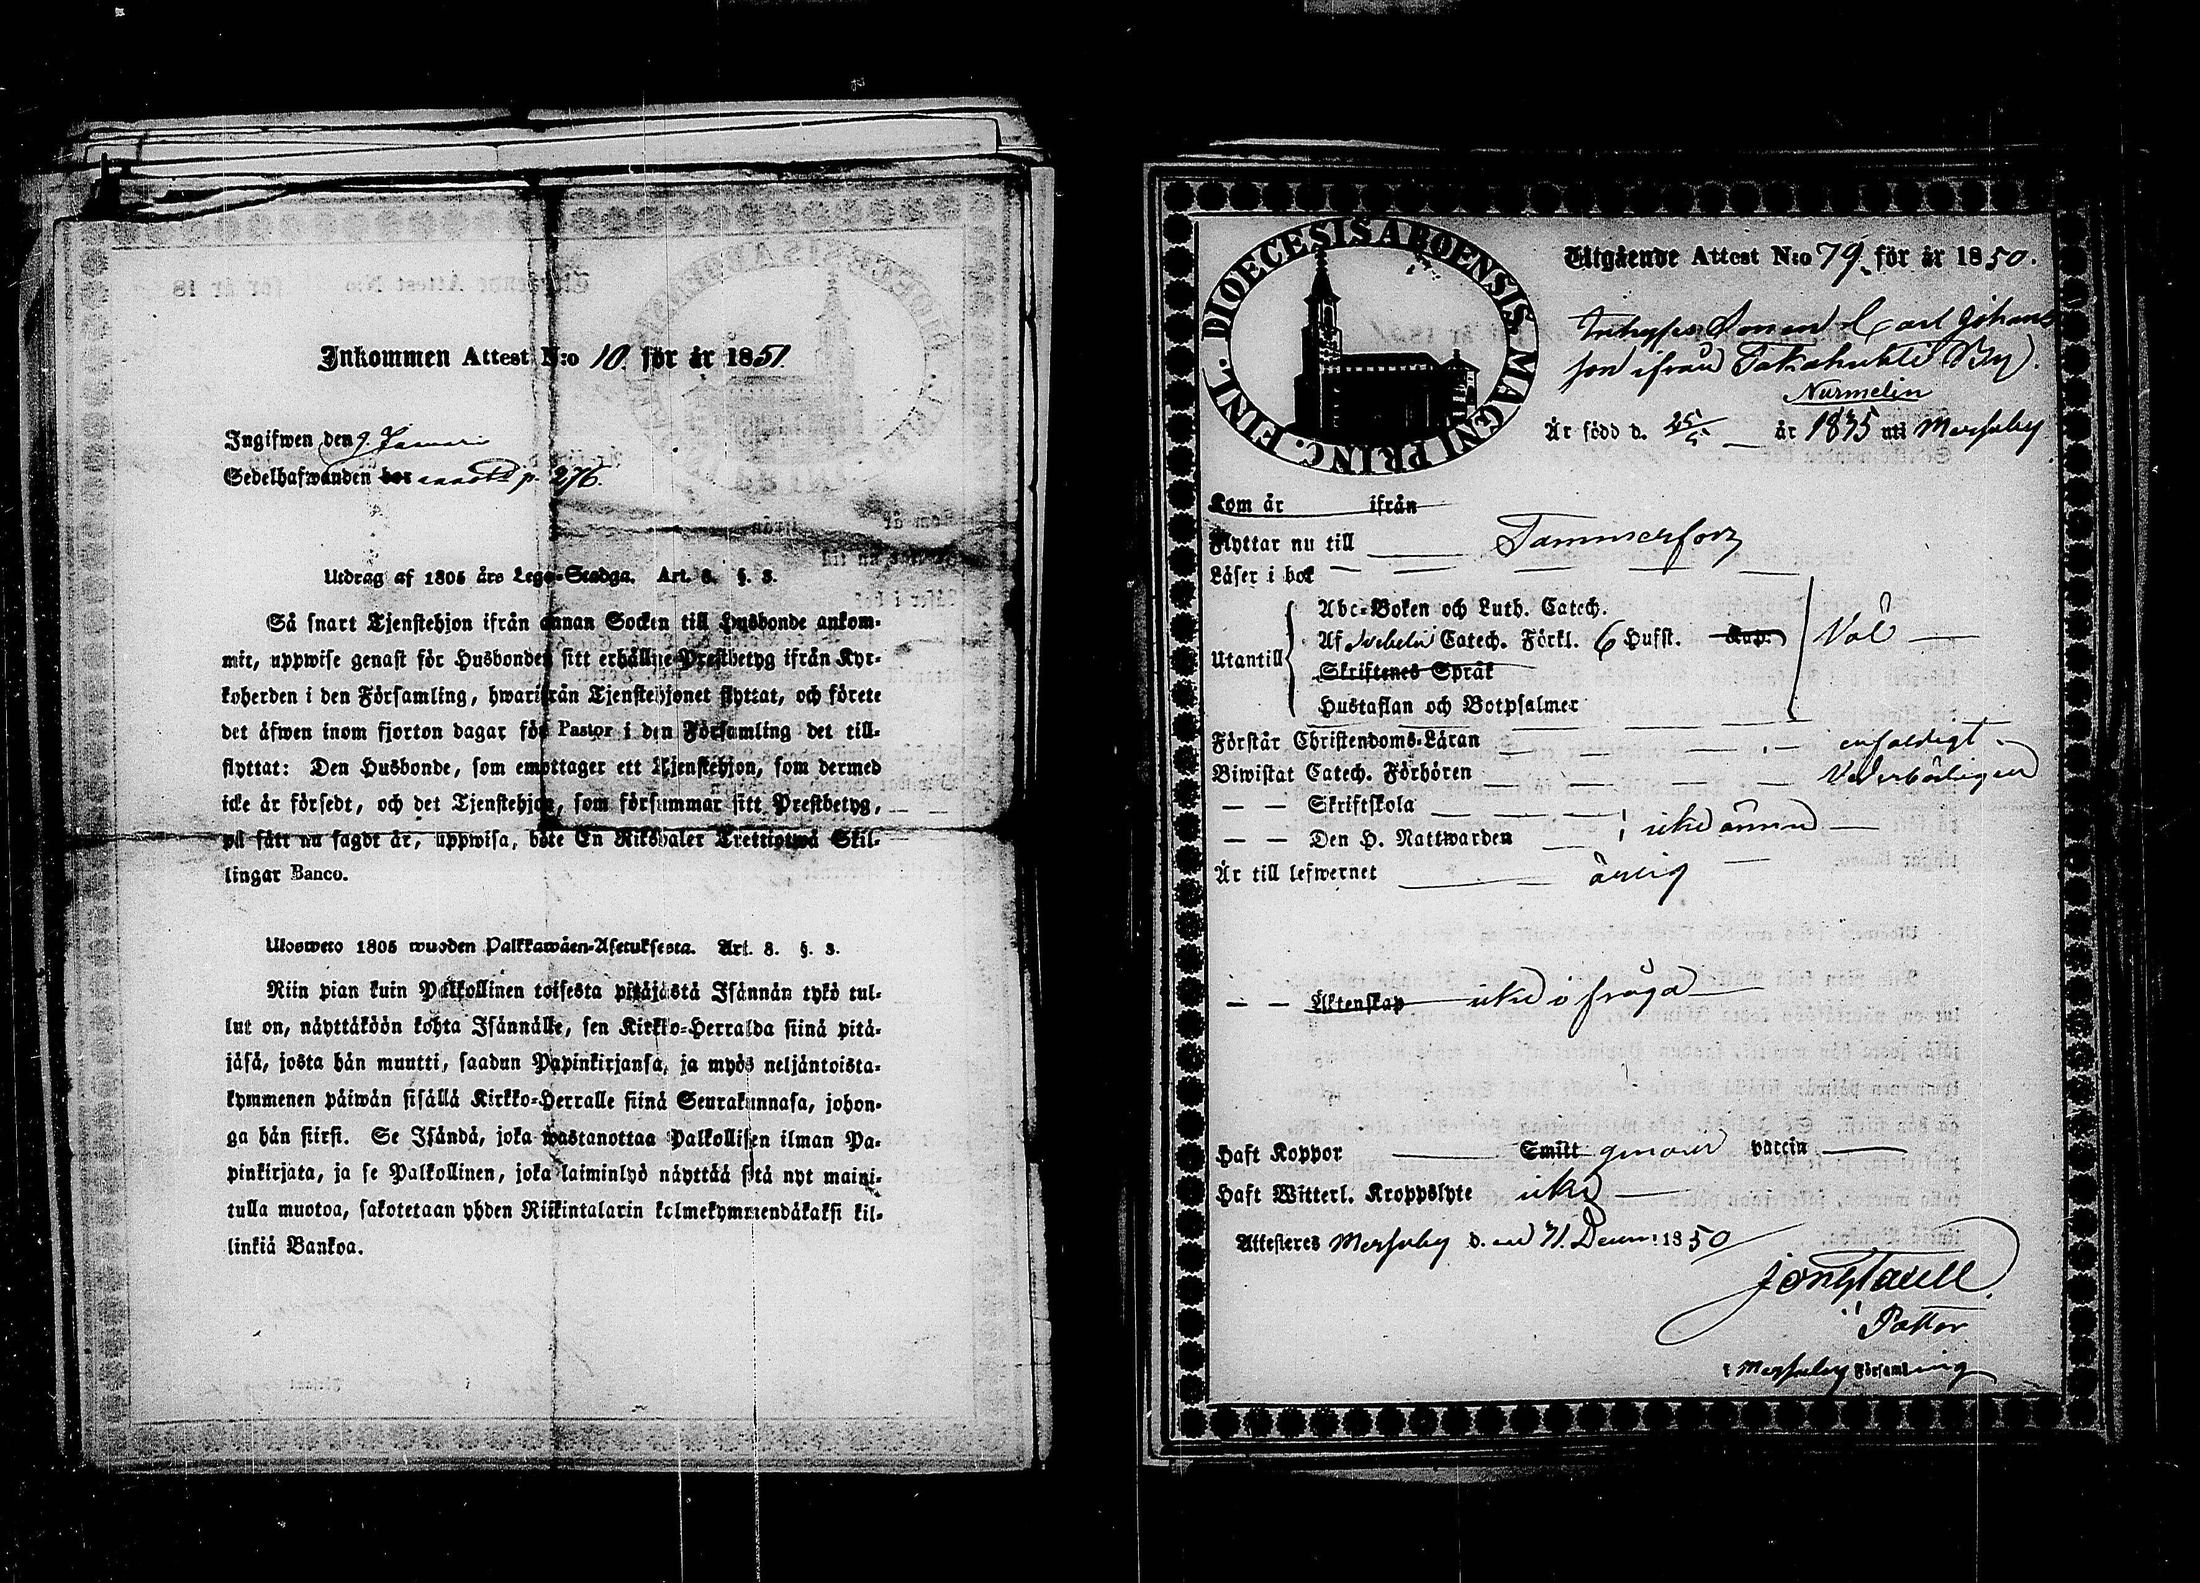 Inkommen Attest N:o 10. för år 1851.
Ingifwen den 9. Januari
Sedelhafwanden bor p. 276.
Utdrag af 1805 års Lego-Stadga. Art. 8. §. 3.
Så snart Tjenstehjon ifrån annan Socken till Husbonde ankom-
mit, uppwise genast för Husbonden sitt erhållne Prestbetyg ifrån Kyr-
koherden i den Församling, hwarifrån Tjenstehjonet flyttat, och förete
det äfwen inom fjorton dagar för Pastor i den Församling det till-
flyttat: Den Husbonde, som emottager ett Tjenstehjon, som dermed
icke är försedt, och det Tjenstehjon, som försummar sitt Prestbetyg,
på sätt nu sagdt är, uppwisa, böte En Riksdaler Trettiotwå Skil-
lingar Banco.
Ulosweto 1805 wuoden Palkkawäen-Asetuksesta. Art. 8. §. 3.
Niin pian kuin Palkollinen toisesta pitäjästä Isännän tykö tul-
lut on, näyttäköön kohta Isännälle, sen Kirkko-Herralda siinä pitä-
jäsä, josta hän muutti, saadun Papinkirjansa, ja myös neljäntoista-
kymmenen päiwän sisällä Kirkko-Herralle siinä Seurakunnasa, johon-
ga hän siirsi. Se Isändä, joka wastanottaa Palkollisen ilman Pa-
pinkirjata, ja se Palkollinen, joka laiminlyö näyttää sitä nyt maini-
tulla muotoa, sakotetaan yhden Riikintalarin kolmekymmendäkaksi kil-
linkiä Bankoa.
DIOECESIS ABOENSIS MAGNI PRINC. FINL.
Utgående Attest N:o 79. för år 1850.
Inhyses Sonen Carl Johans
son ifrån Takahuhti By.
Nurmelin
Är född d. 25/5 år 1835 uti Messuby
Kom år ifrån
Flyttar nu till Tammerfors
Läser i bok
Utantill
Abc-Boken och Luth. Catech.
Af Svebelii Catech. Förkl. 6 Hufst. Kap:
Skriftenes Språk
Hustaflan och Botpsalmer
Väl
Förstår Christendoms-Läran enfaldigt
Biwistat Catech. Förhören Vederbörligen
— — Skriftskola
— — Den H. Nattwarden icke ännu
Är till lefwernet ärlig
— — Äktenskap icke i fråga
Haft Koppor Smitt genom vaccin
Haft Witterl. Kroppslyte icke
Attesteres Messuby d. 31. Decem: 1850
Pastor
i Messuby Församling